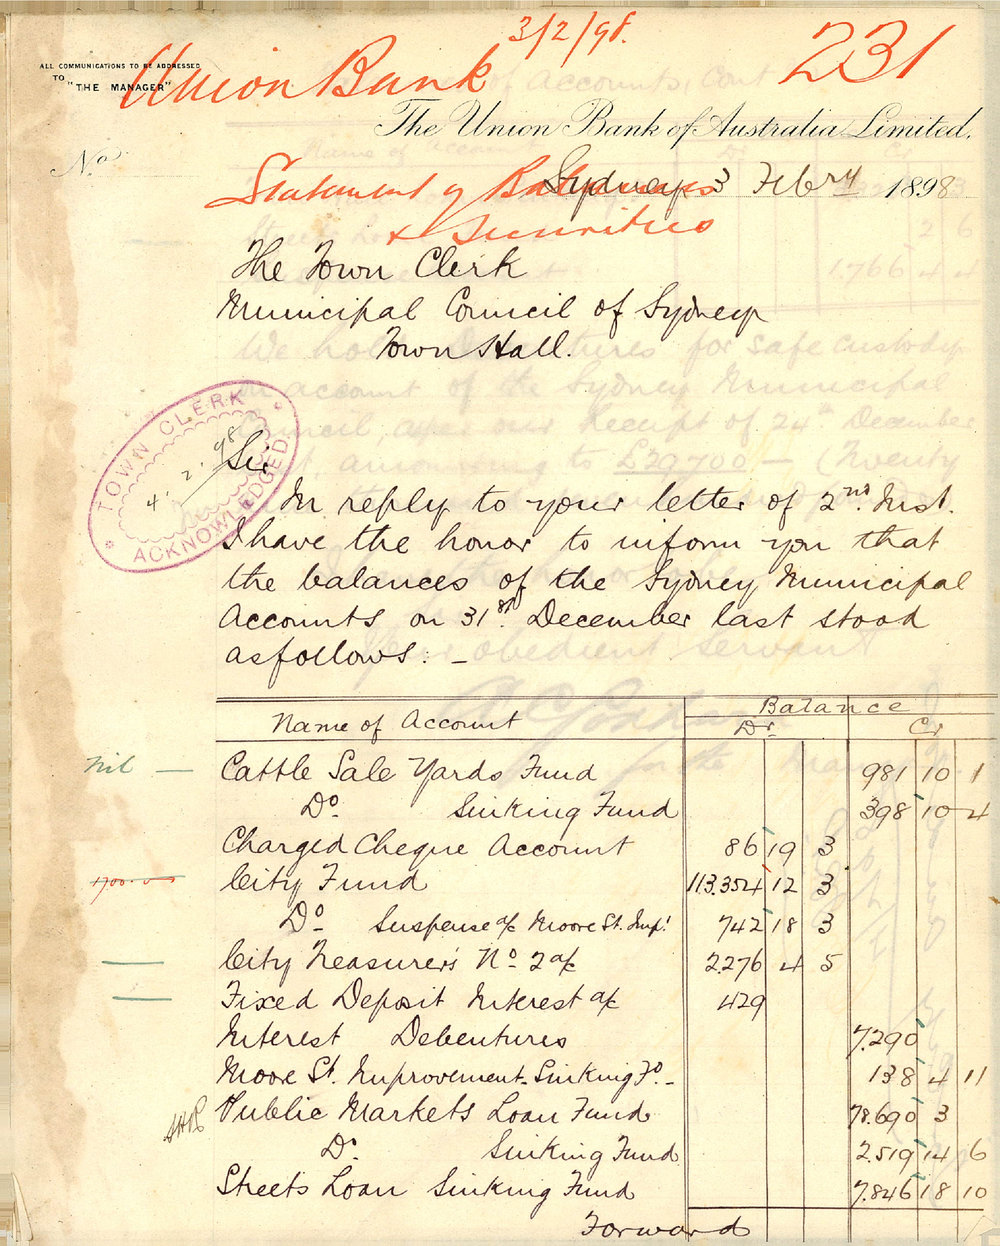 3/2/98.
231
Union Bank
ALL COMMUNICATIONS TO BE ADDRESSED
TO
"THE MANAGER"
The Union Bank of Australia Limited.
No.
Statement of Balances
& Securities
Sydney 3 Febry 1898
The Town Clerk
Municipal Council of Sydney
Town Hall.
TOWN CLERK
4. 2. 98
ACKNOWLEDGED.
Sir
In reply to your letter of 2nd. Inst.
I have the honor to inform you that
the balances of the Sydney Municipal
Accounts on 31st. December last stood
as follows. _
Name of Account Balance
Dr Cr
Nil — Cattle Sale Yards Fund 981 10 1
Do. Sinking Fund 398 10 4
Charged Cheque Account 86 19 3
1700.0.0 City Fund 113.354 12 3
Do Suspense a/c Moore St. Imp! 742 18 3
— City Treasurer's No 2 a/c 2.276 4 5
— Fixed Deposit Interest a/c 429
Interest Debentures 7.290
Moore St. Improvement Sinking Fd. 138 4 11
Public Markets Loan Fund 78.690 3
Do. Sinking Fund 2.519 14 6
Streets Loan Sinking Fund 7.846 18 10
Forward